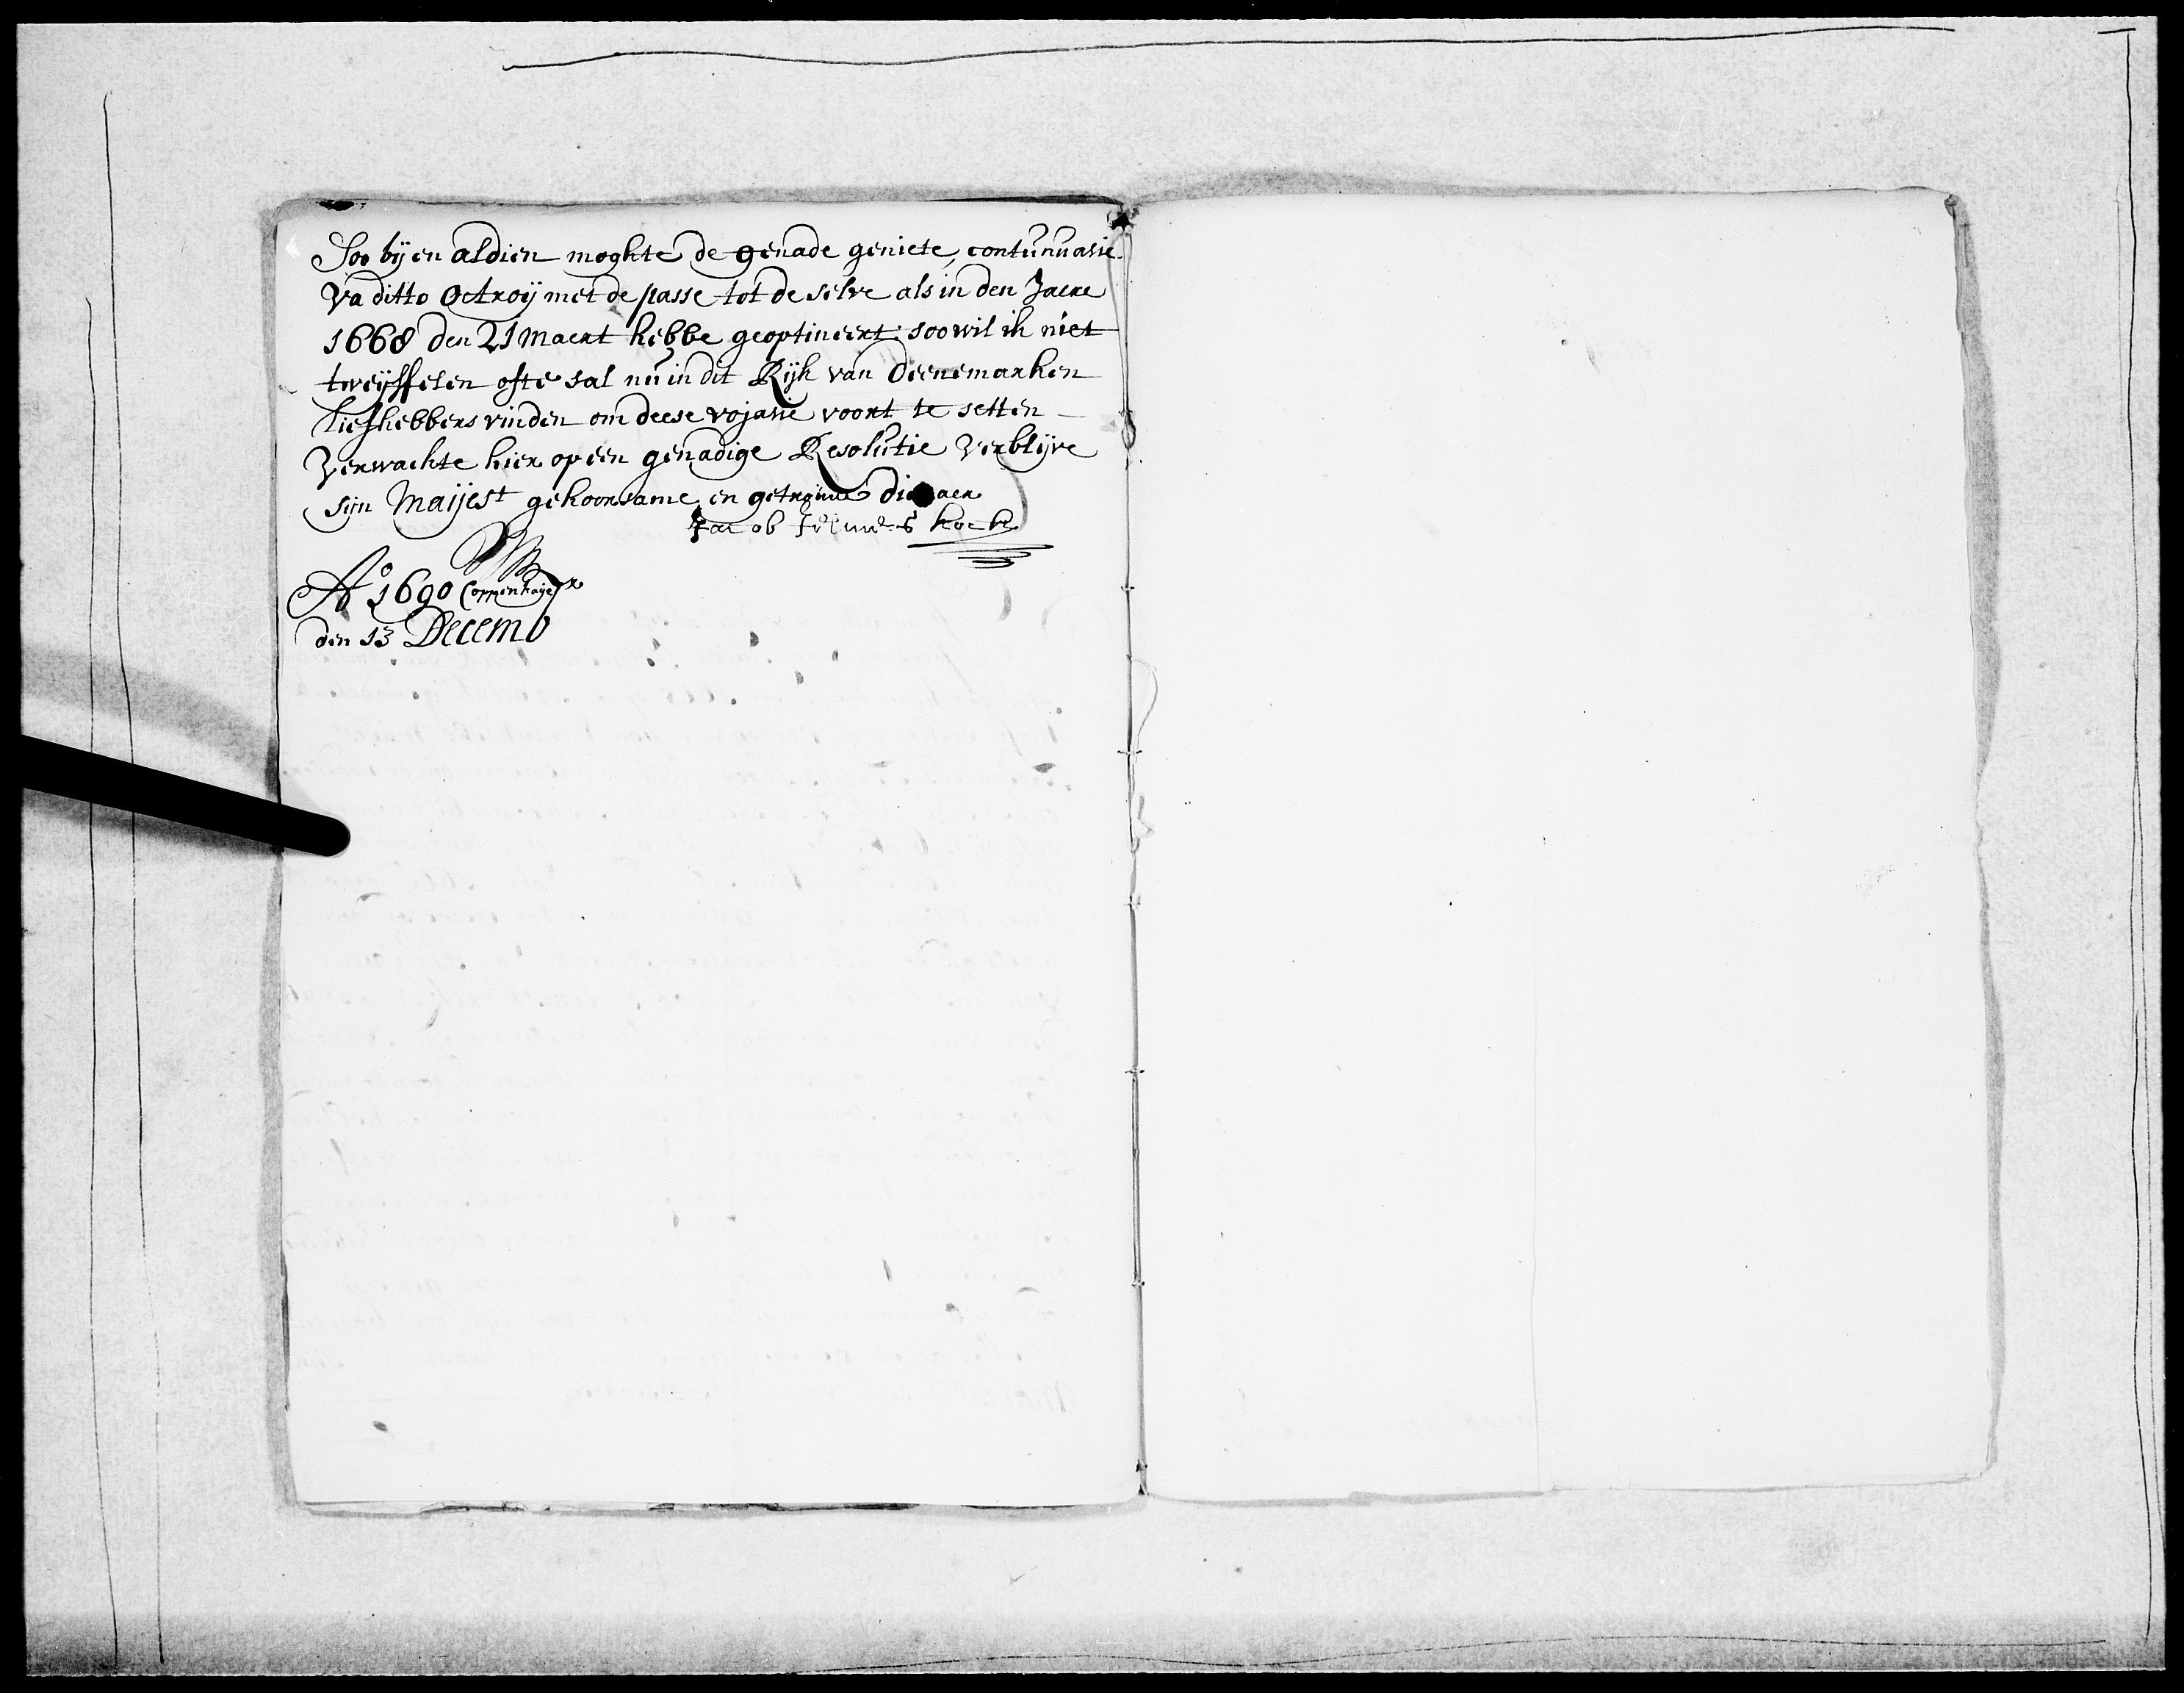 Soo bij en aldien moghte de genade geniete, contunuasie
va ditto Octroij met de passe tot de selve als in den Jaere
1668 den 21 Maert hebbe geoptineert soo wil ik niet
tweijffelen ofte sal nu in dit Rijk van Deenemarken
liefhebbers vinden om deese vojasie voort te setten
Verwachte hier op een genadige Resolutie Verblijve
sijn Maijest gehoorsame en getrouwe dienaer
Jacob
Ao 1690 Coppenhagen
den 13 Decemb